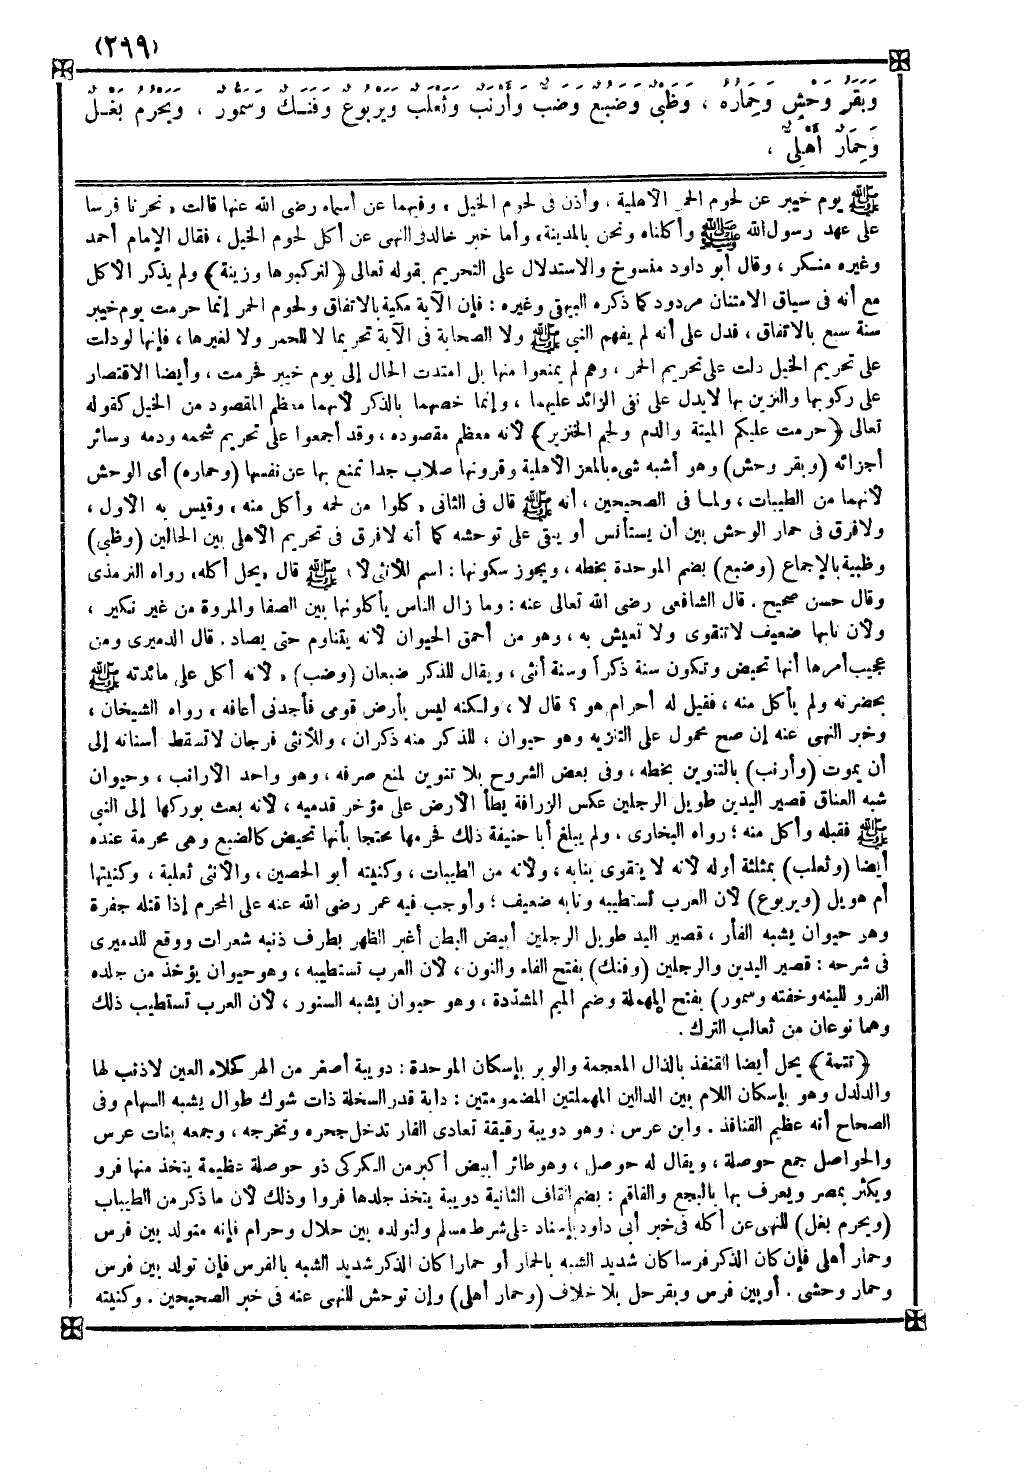 (٢٩٩)
وَبَقَرُ وَحْشٍ وَحِمَارُهُ ، وَظَبْيٌ وَضَبُعٌ وَضَبٌّ وَأَرْنَبٌ وَثَعْلَبٌ وَيَرْبُوعٌ وَفَنَكٌ وَسَمُّورٌ ، وَيَحْرُمُ بَغْلٌ
وَحِمَارٌ أَهْلِيٌّ ،
ﷺ يوم خيبر عن لحوم الحمر الأهلية ، وأذن فى لحوم الخيل ، وفيهما عن أسماء رضى الله عنها قالت « نحرنا فرسا
على عهد رسول الله ﷺ وأكلناه ونحن بالمدينة » وأما خبر خالد فى النهى عن أكل لحوم الخيل ، فقال الإمام أحمد
وغيره منكر ، وقال أبو داود منسوخ والاستدلال على التحريم بقوله تعالى (لتركبوها وزينة) ولم يذكر الأكل
مع أنه فى سياق الامتنان مردود كما ذكره البيهقى وغيره : فإن الآية مكية بالاتفاق ولحوم الحمر إنما حرمت يوم خيبر
سنة سبع بالاتفاق ، فدل على أنه لم يفهم النبي ﷺ ولا الصحابة فى الآية تحريما لا للحمر ولا لغيرها ، فإنها لو دلت
على تحريم الخيل دلت على تحريم الحمر ، وهم لم يمنعوا منها بل امتدت الحال إلى يوم خيبر فحرمت ، وأيضا الاقتصار
على ركوبها والتزين بها لا يدل على نفى الزائد عليهما ، وإنما خصهما بالذكر لأنهما معظم المقصود من الخيل كقوله
تعالى (حرمت عليكم الميتة والدم ولحم الخنزير) لأنه معظم مقصوده ، وقد أجمعوا على تحريم شحمه ودمه وسائر
أجزائه (وبقر وحش) وهو أشبه شىء بالمعز الأهلية وقرونها صلاب جدا تمنع بها عن نفسها (وحماره) أى الوحش
لأنهما من الطيبات ، ولما فى الصحيحين ، أنه ﷺ قال فى الثانى « كلوا من لحمه وأكل منه » وقيس به الأول ،
ولا فرق فى حمار الوحش بين أن يستأنس أو يبقى على توحشه كما أنه لا فرق فى تحريم الأهلى بين الحالين (وظبى)
وظبية بالإجماع (وضبع) بضم الموحدة بخطه ، ويجوز سكونها : اسم للأنثى لأنه ﷺ قال « يحل أكله » رواه الترمذى
وقال حسن صحيح . قال الشافعى رضى الله تعالى عنه : وما زال الناس يأكلونها بين الصفا والمروة من غير نكير ،
ولأن نابها ضعيف لا تتقوى ولا تعيش به ، وهو من أحمق الحيوان لأنه يتناوم حتى يصاد . قال الدميرى ومن
عجيب أمرها أنها تحيض وتكون سنة ذكرا وسنة أنثى ، ويقال للذكر ضبعان (وضب) « لأنه أكل على مائدته ﷺ
بحضرته ولم يأكل منه ، فقيل له أحرام هو ؟ قال لا ، ولكنه ليس بأرض قومى فأجدنى أعافه » رواه الشيخان ،
وخبر النهى عنه إن صح محمول على التنزيه وهو حيوان ، للذكر منه ذكران ، وللأنثى فرجان لا تسقط أسنانه إلى
أن يموت (وأرنب) بالتنوين بخطه ، وفى بعض الشروح بلا تنوين لمنع صرفه ، وهو واحد الأرانب ، وحيوان
شبه العناق قصير اليدين طويل الرجلين عكس الزرافة يطأ الأرض على مؤخر قدميه ، لأنه بعث بوركها إلى النبي
ﷺ فقبله وأكل منه ؛ رواه البخارى ، ولم يبلغ أبا حنيفة ذلك فحرمها محتجا بأنها تحيض كالضبع وهى محرمة عنده
أيضا (وثعلب) بمثلثة أوله لأنه لا يتقوى بنابه ، ولأنه من الطيبات ، وكنيته أبو الحصين ، والأنثى ثعلبة ، وكنيتها
أم هويل (ويربوع) لأن العرب تستطيبه ونابه ضعيف ؛ وأوجب فيه عمر رضى الله عنه على المحرم إذا قتله جفرة
وهو حيوان يشبه الفأر ، قصير اليد طويل الرجلين أبيض البطن أغبر الظهر بطرف ذنبه شعرات ووقع للدميرى
فى شرحه : قصير اليدين والرجلين (وفنك) بفتح الفاء والنون ، لأن العرب تستطيبه ، وهو حيوان يؤخذ من جلده
الفرو للينه وخفته وسمور) بفتح المهملة وضم الميم المشددة ، وهو حيوان يشبه السنور ، لأن العرب تستطيب ذلك
وهما نوعان من ثعالب الترك .
(تتمة) يحل أيضا القنفذ بالذال المعجمة والوبر بإسكان الموحدة : دويبة أصغر من الهر كحلاء العين لا ذنب لها
والدلدل وهو بإسكان اللام بين الدالين المهملتين المضمومتين : دابة قدر السخلة ذات شوك طوال يشبه السهام وفى
الصحاح أنه عظيم القنافذ . وابن عرس . وهو دويبة رقيقة تعادى الفار تدخل جحره وتخرجه ، وجمعه بنات عرس
والحواصل جمع حوصلة ، ويقال له حوصل ، وهو طائر أبيض أكبر من الكركى ذو حوصلة عظيمة يتخذ منها فرو
ويكثر بمصر ويعرف بها بالبجع والقاقم : بضم القاف الثانية دويبة يتخذ جلدها فروا وذلك لأن ما ذكر من الطيبات
(ويحرم بغل) للنهى عن أكله فى خبر أبى داود بإسناد على شرط مسلم ولتولده بين حلال وحرام فإنه متولد بين فرس
وحمار أهلى فإن كان الذكر فرسا كان شديد الشبه بالحمار أو حمارا كان الذكر شديد الشبه بالفرس فإن تولد بين فرس
وحمار وحشى . أو بين فرس وبقر حل بلا خلاف (وحمار أهلى) وإن توحش للنهى عنه فى خبر الصحيحين . وكنيته